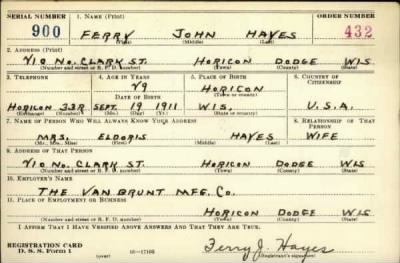 SERIAL NUMBER 1. NAME (Print) ORDER NUMBER
900 FERRY JOHN HAYES 432
(First) (Middle) (Last)
2. ADDRESS (Print)
710 NO. CLARK ST. HORICON DODGE WIS
(Number and street or R. F. D. number) (Town) (County) (State)
3. TELEPHONE 4. AGE IN YEARS 5. PLACE OF BIRTH 6. COUNTRY OF CITIZENSHIP
29 HORICON
DATE OF BIRTH (Town or county)
HORICON 33R SEPT. 19 1911 WIS. U.S.A.
(Exchange) (Number) (Mo.) (Day) (Yr.) (State or country)
7. NAME OF PERSON WHO WILL ALWAYS KNOW YOUR ADDRESS 8. RELATIONSHIP OF THAT PERSON
MRS. ELDORIS HAYES WIFE
(Mr., Mrs., Miss) (First) (Middle) (Last)
9. ADDRESS OF THAT PERSON
710 NO. CLARK ST. HORICON DODGE WIS
(Number and street or R. F. D. number) (Town) (County) (State)
10. EMPLOYER'S NAME
THE VAN BRUNT MFG. CO.
11. PLACE OF EMPLOYMENT OR BUSINESS
HORICON DODGE WIS
(Number and street or R. F. D. number) (Town) (County) (State)
I AFFIRM THAT I HAVE VERIFIED ABOVE ANSWERS AND THAT THEY ARE TRUE.
REGISTRATION CARD
D. S. S. Form 1 (over) 16—17105 Ferry J. Hayes
(Registrant's signature)